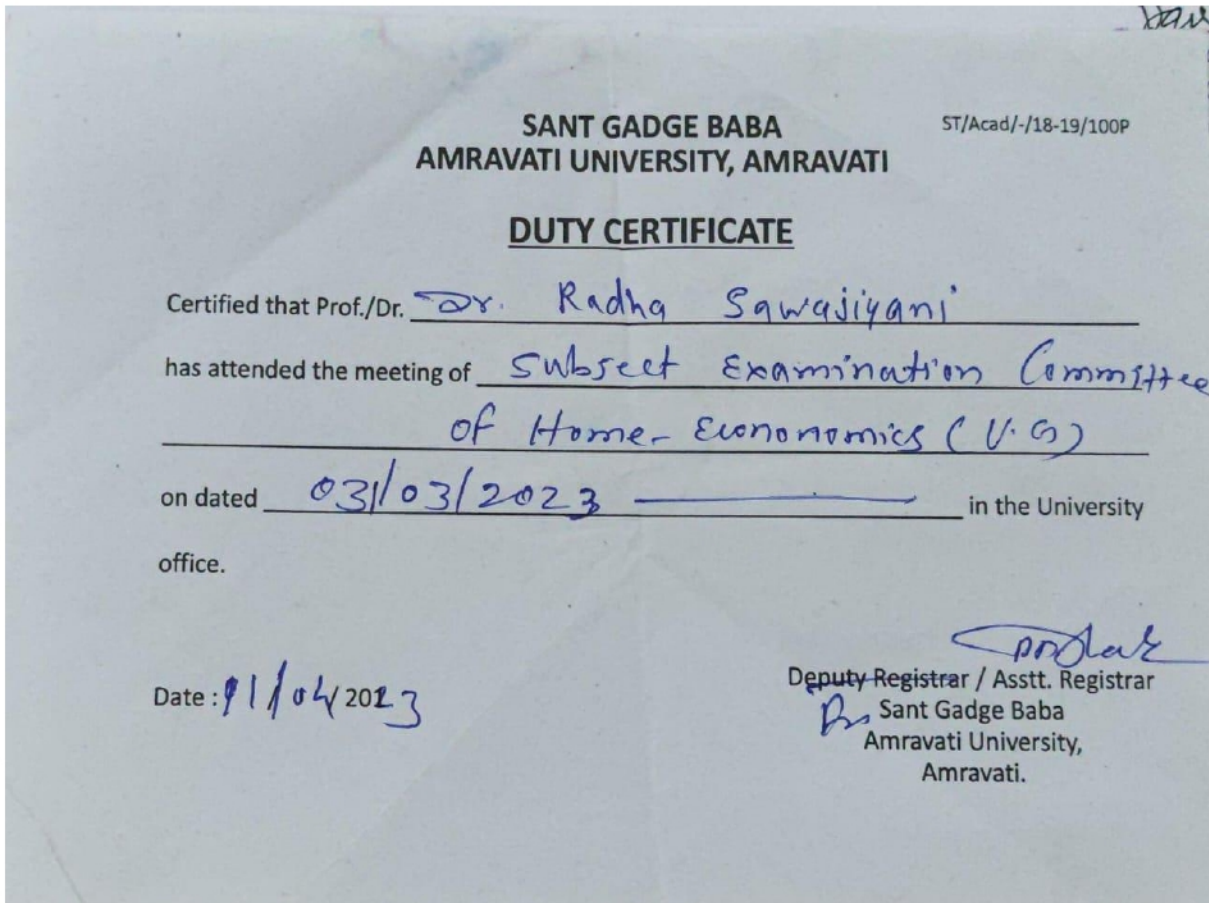 ST/Acad/-/18-19/100P
SANT GADGE BABA
AMRAVATI UNIVERSITY, AMRAVATI
DUTY CERTIFICATE
Certified that Prof./Dr. Dr. Radha Sawajiyani
has attended the meeting of Subject Examination Committee
of Home-Econonomics (U.G)
on dated 03/03/2023 in the University
office.
Date : 11/04/2023
Deputy Registrar / Asstt. Registrar
Sant Gadge Baba
Amravati University,
Amravati.